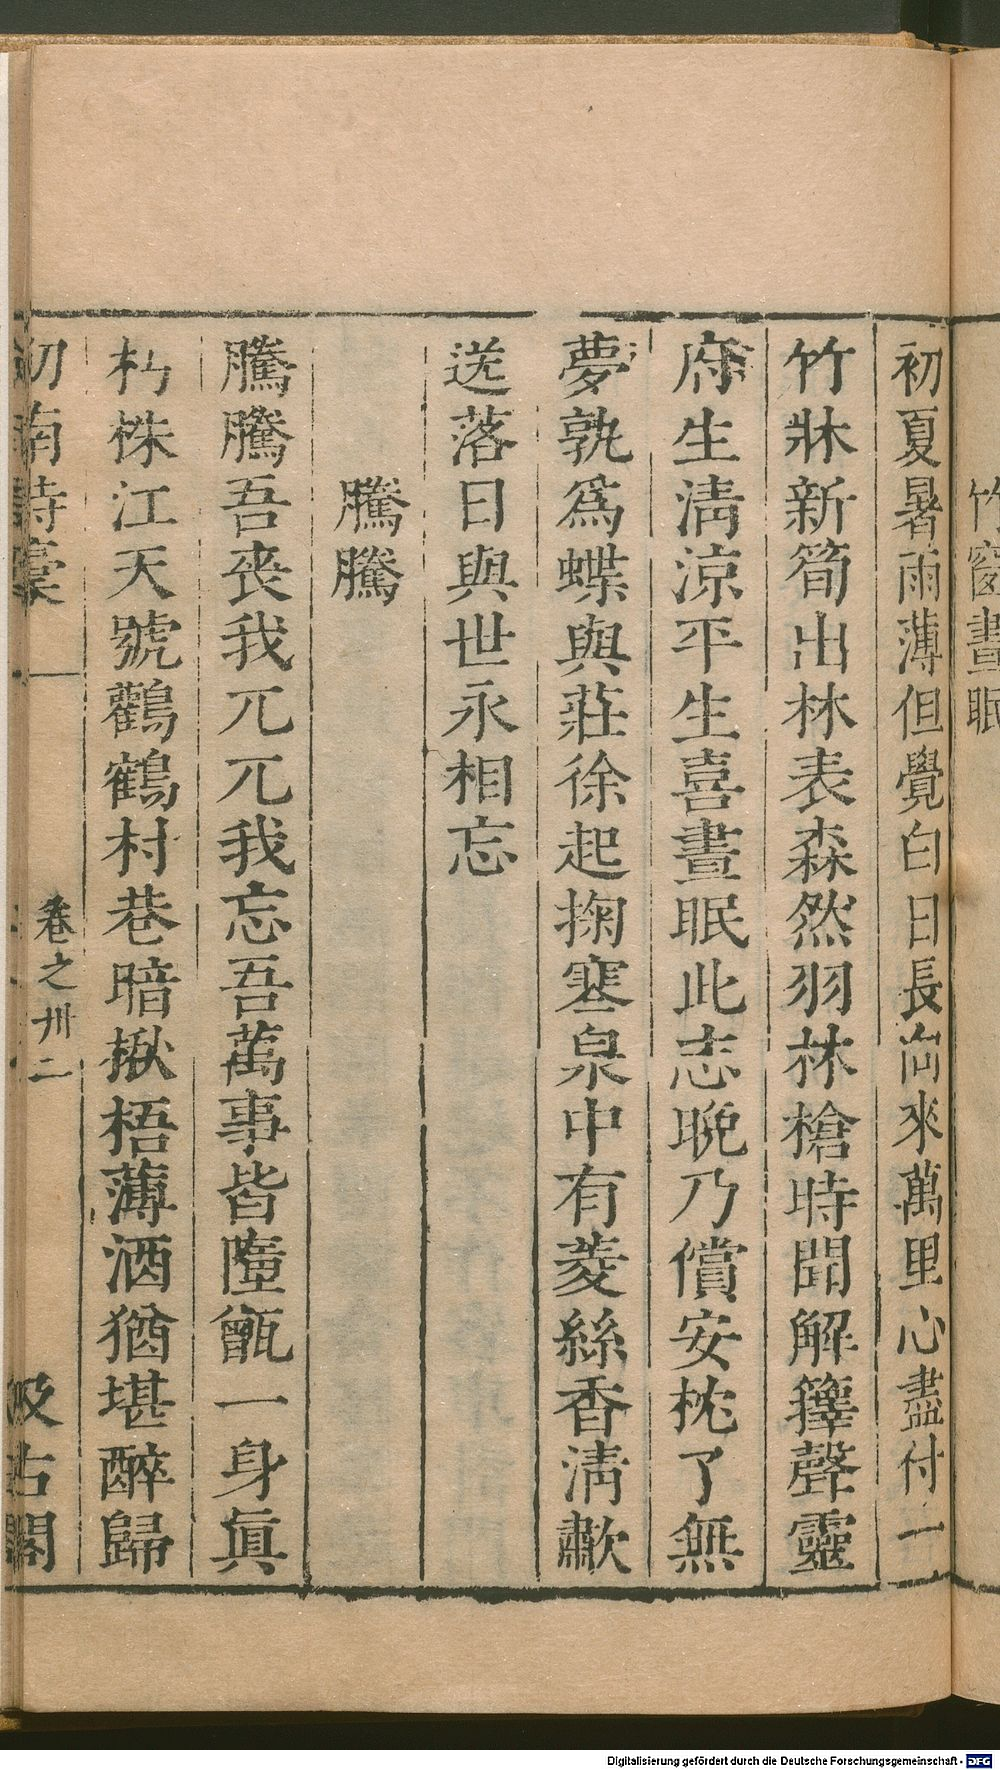 竹窗晝眠
初夏暑雨薄但覺白日長向來萬里心盡付一
竹牀新筍出林表森然羽林槍時聞解籜聲靈
府生淸涼平生喜晝眠此志晚乃償安枕了無
夢孰爲蝶與莊徐起掬寒泉中有菱絲香淸歗
送落日與世永相忘
騰騰
騰騰吾喪我兀兀我忘吾萬事皆墮甑一身眞
朽株江天號鸛鶴村巷暗楸梧薄酒猶堪醉歸
劒南詩稾
卷之卅二
汲古閣
Digitalisierung gefördert durch die Deutsche Forschungsgemeinschaft - DFG